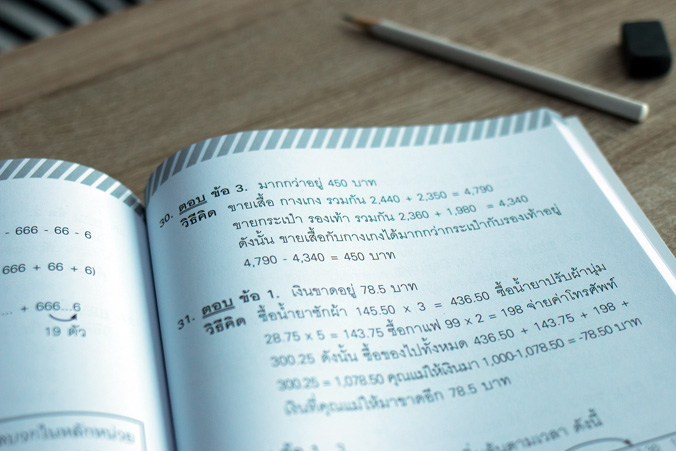 - 666 - 66 - 6
666 + 66 + 6)
... + 666...6
19 ตัว
30. ตอบ ข้อ 3. มากกว่าอยู่ 450 บาท
วิธีคิด ขายเสื้อ กางเกง รวมกัน 2,440 + 2,350 = 4,790
ขายกระเป๋า รองเท้า รวมกัน 2,360 + 1,980 = 4,340
ดังนั้น ขายเสื้อกับกางเกงได้มากกว่ากระเป๋ากับรองเท้าอยู่
4,790 - 4,340 = 450 บาท
31. ตอบ ข้อ 1. เงินขาดอยู่ 78.5 บาท
วิธีคิด ซื้อน้ำยาซักผ้า 145.50 x 3 = 436.50 ซื้อน้ำยาปรับผ้านุ่ม
28.75 x 5 = 143.75 ซื้อกาแฟ 99 x 2 = 198 จ่ายค่าโทรศัพท์
300.25 ดังนั้น ซื้อของไปทั้งหมด 436.50 + 143.75 + 198 +
300.25 = 1,078.50 คุณแม่ให้เงินมา 1,000-1,078.50 = -78.50 บาท
เงินที่คุณแม่ให้มาขาดอีก 78.5 บาท
ตามเวลา ดังนี้